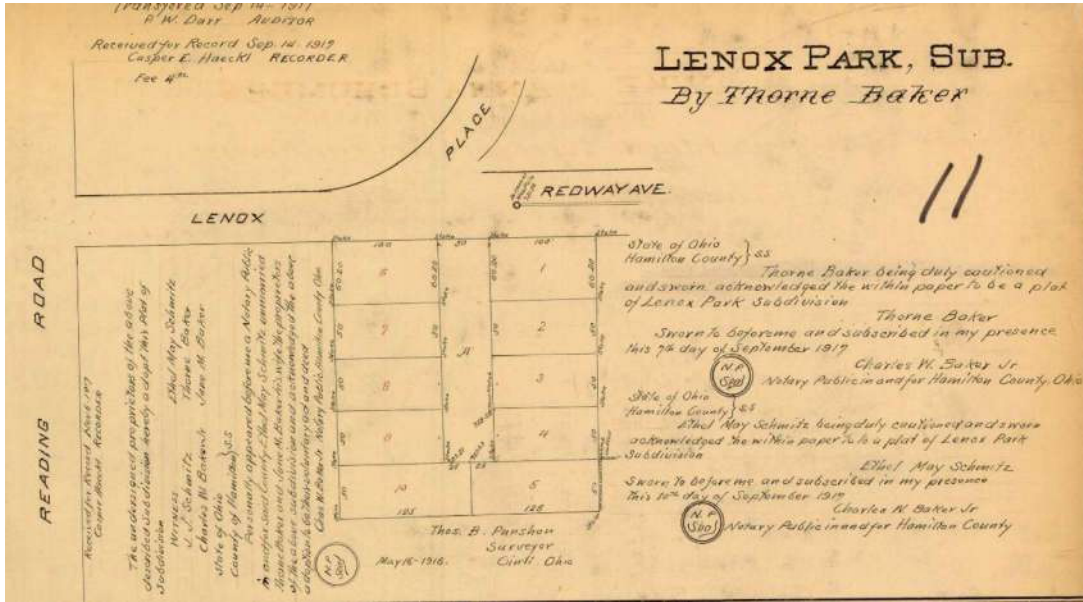 Transferred Sep 14 - 1917
AUDITOR
Received for Record Sep. 14. 1917
Casper E. Haeckl RECORDER
Fee
LENOX PARK, SUB.
By Thorne Baker
11
PLACE
REDWAY AVE.
LENOX
READING ROAD
Stake
100
50
100
60.20
60.20
60.20
60.20
6
1
50
50
50
7
A
2
50
8
3
50
9
4
50
10
5
125
125
25
25
Thos. B. Punshon
Surveyor
Cinti. Ohio
May 16 - 1916.
N.P.
Seal
RECORDER
The undersigned proprietors of the above
described Subdivision hereby adopt this Plat of
Subdivision
WITNESS
Ethel May Schmitz
J. J. Schmitz
Thorne Baker
Charles W. Baker Jr
Jane M. Baker
State of Ohio
County of Hamilton } S.S
Personally appeared before me a Notary Public
in and for said County Ethel May Schmitz unmarried
Thorne Baker and Jane M. Baker his wife the proprietors
of the above subdivision and acknowledged the above
adoption to be their voluntary act and deed
Chas W. Baker Jr. Notary Public Hamilton County Ohio
State of Ohio
Hamilton County } S.S
Thorne Baker being duly cautioned
and sworn acknowledged the within paper to be a plat
of Lenox Park Subdivision
Thorne Baker
Sworn to before me and subscribed in my presence
this 7th day of September 1917
Charles W. Baker Jr
N.P.
Seal
Notary Public in and for Hamilton County. Ohio
State of Ohio
Hamilton County } S.S
Ethel May Schmitz being duly cautioned and sworn
acknowledged the within paper to be a plat of Lenox Park
Subdivision
Ethel May Schmitz
Sworn to before me and subscribed in my presence
this 10th day of September 1917
Charles W. Baker Jr
N.P.
Seal
Notary Public in and for Hamilton County